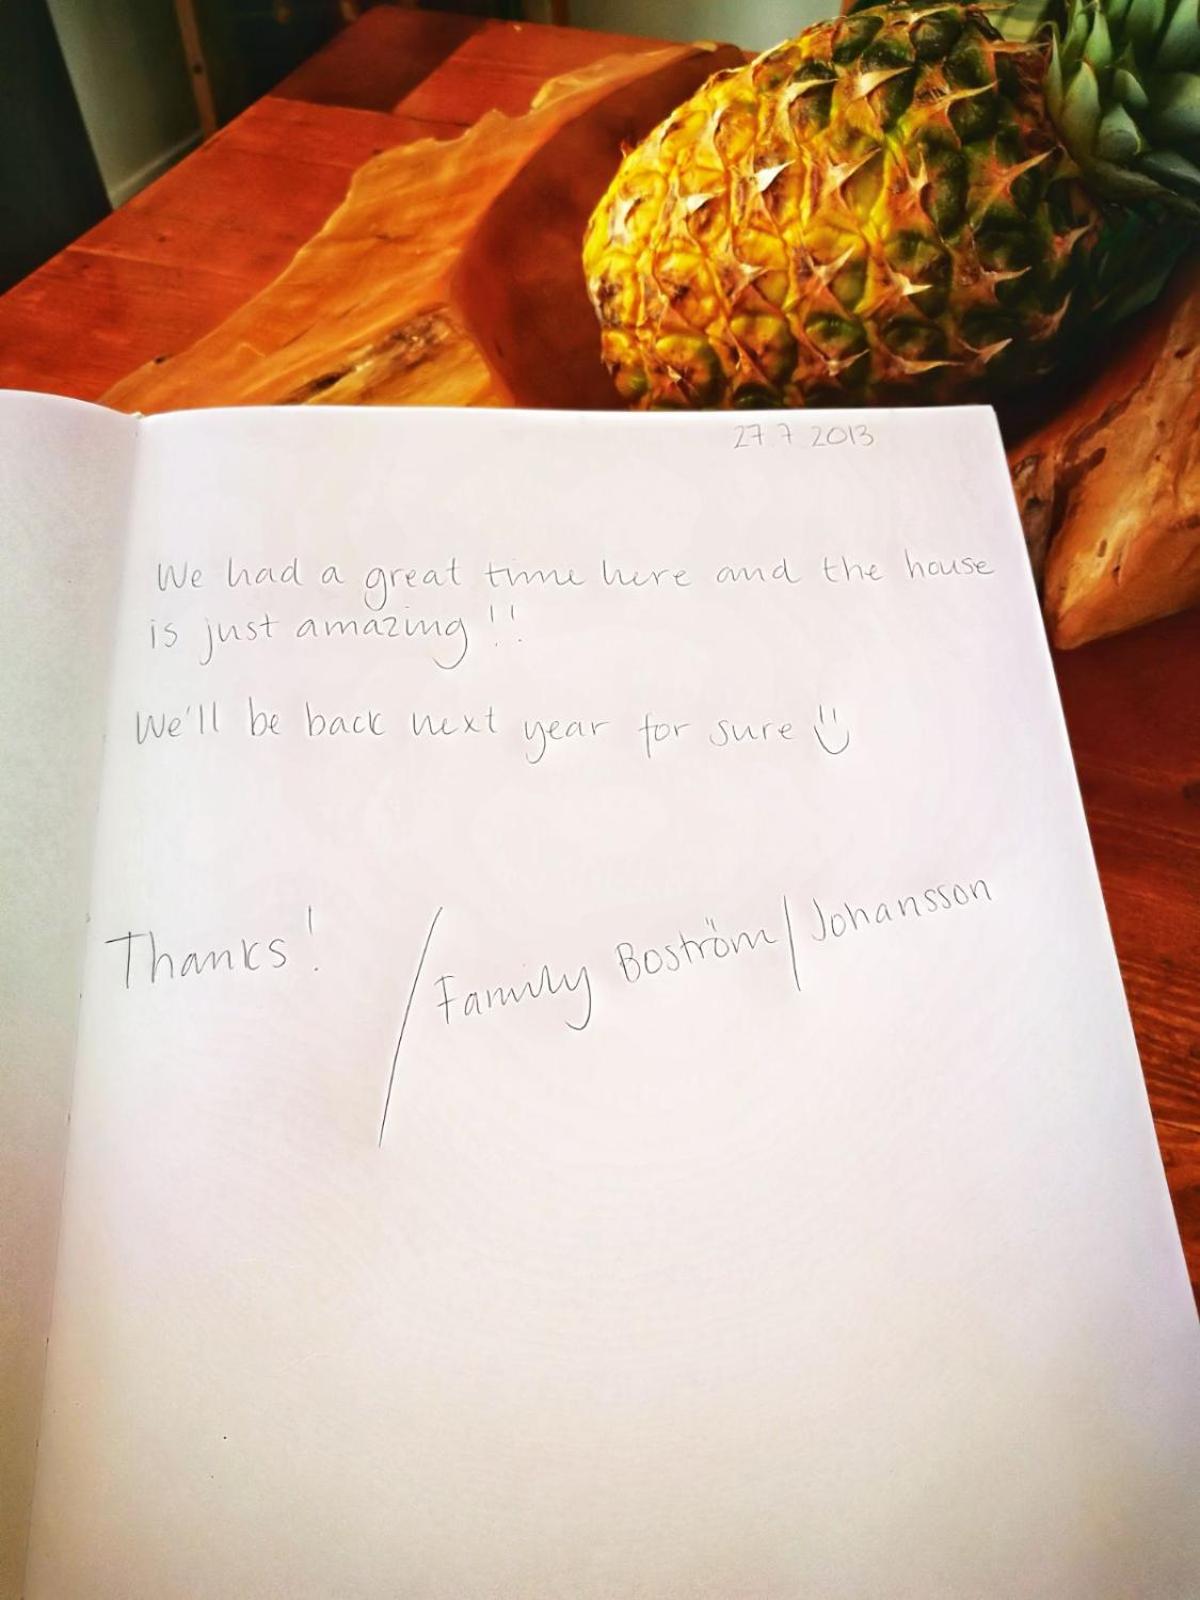 27.7 2013
We had a great time here and the house
is just amazing!!
We'll be back next year for sure Ü
Thanks! /Family Boström/Johansson